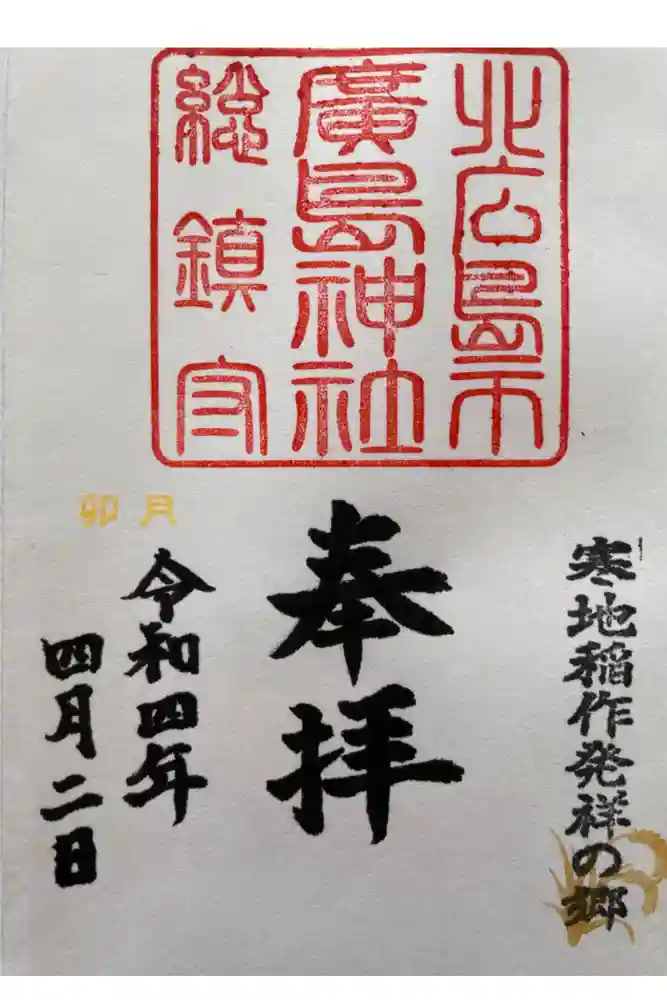 北広島市
廣島神社
総鎮守
寒地稲作発祥の郷
奉拝
卯月
令和四年
四月二日